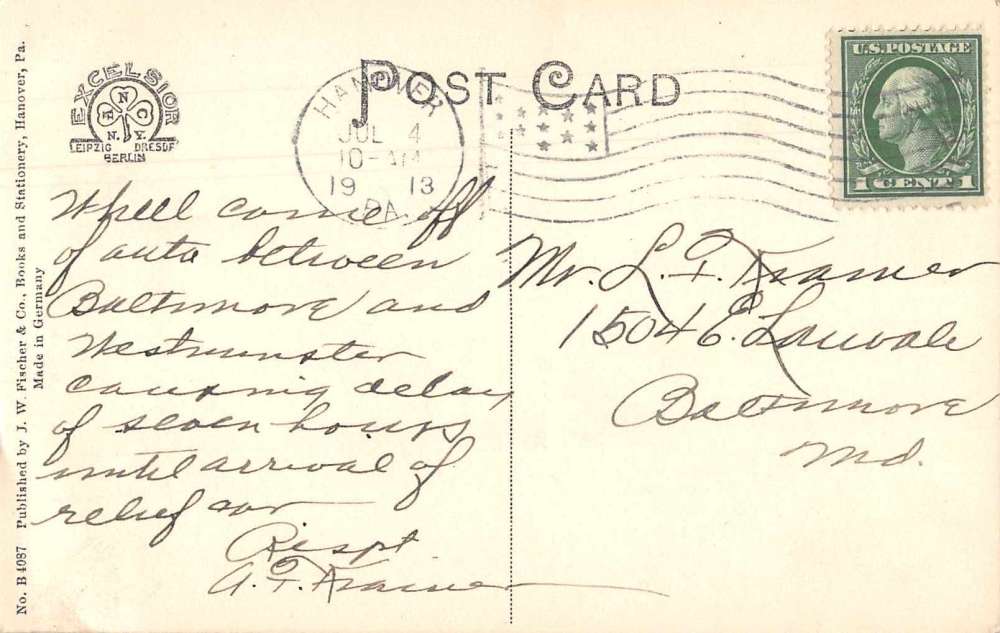 POST CARD
EXCELSIOR
A N C
N. Y.
LEIPZIG DRESDE
BERLIN
HANOVER
JUL 4
10-AM
19 13
PA.
U.S. POSTAGE
1 CENT 1
Wheel came off
of auto between
Baltimore and
Westminster
causing delay
of seven hours
until arrival of
relief car
Respt
A. F. Kramer
Mr. L. F. Kramer
1504 E. Lanvale
Baltimore
Md.
No. B 4087 Published by J. W. Fischer & Co., Books and Stationery, Hanover, Pa.
Made in Germany